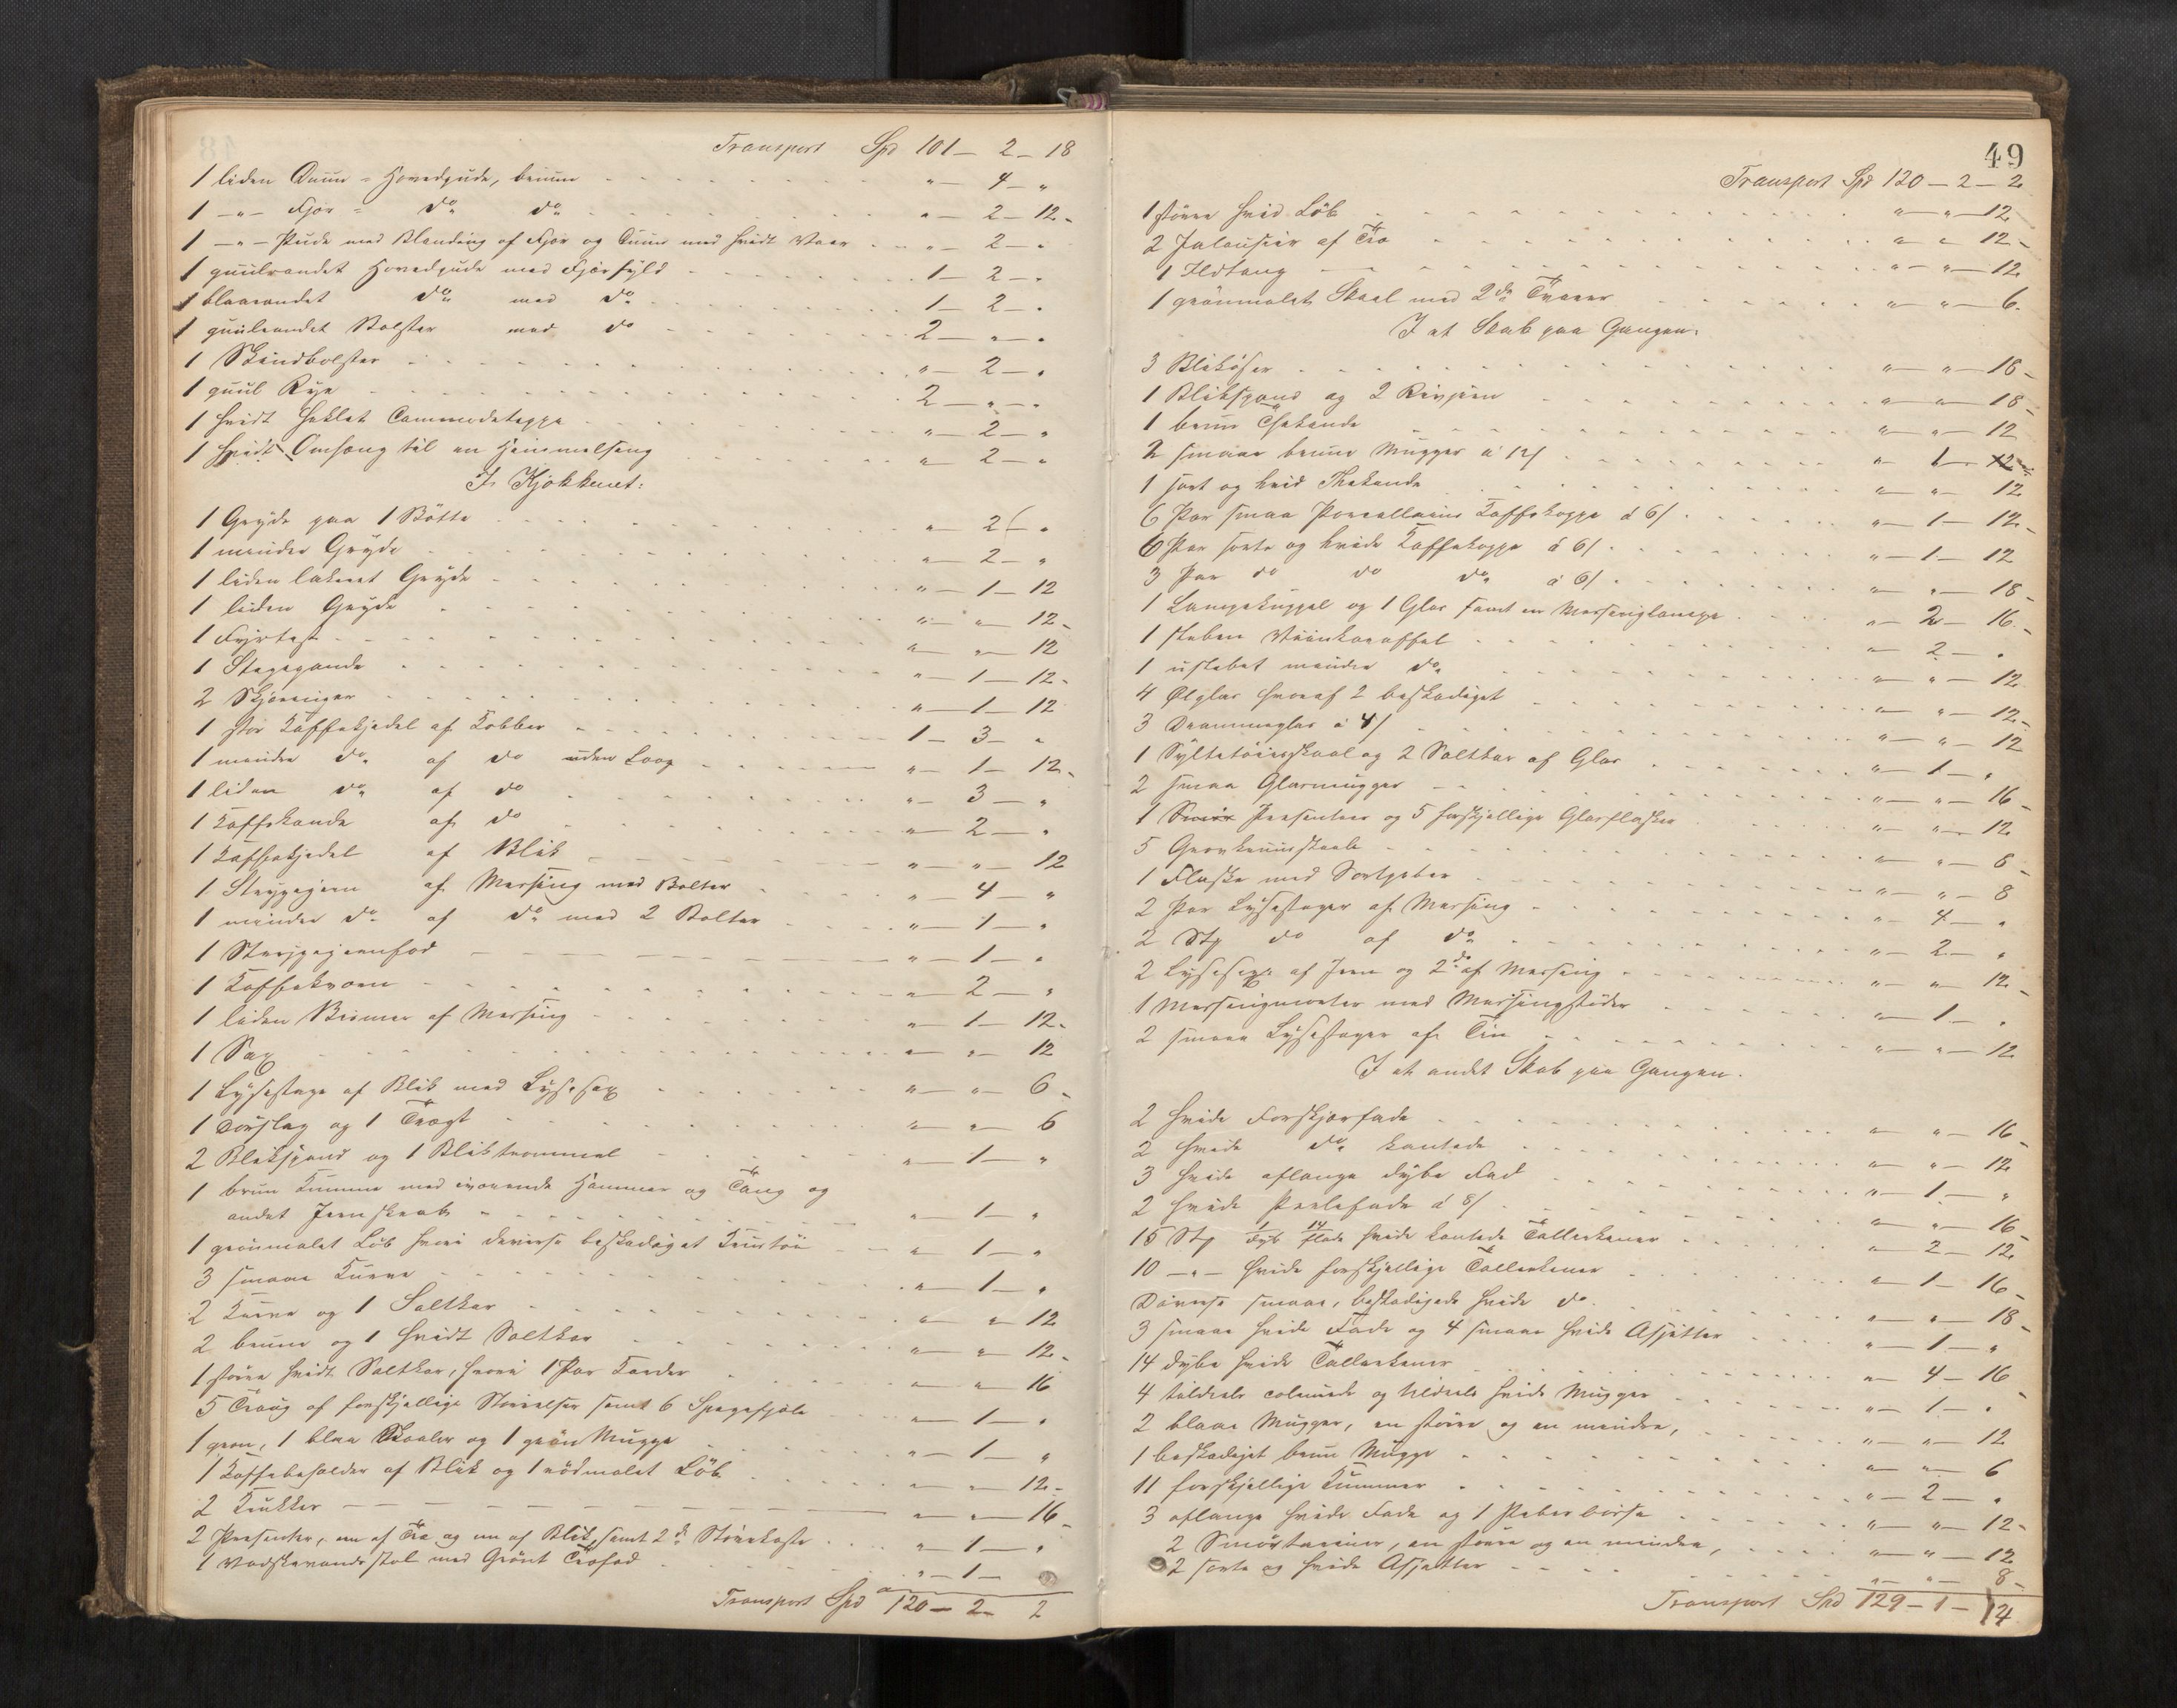 Transport Spd 101 – 2 – 18
1 liden Duun-Hovedpude, bruun " – 4 – "
1 –"– Fjør- do do " – 2 – 12
1 –"– Pude med Blanding af Fjær og Duun med hvidt Vaar " – 2 – "
1 guulrandet Hovedpude med Fjærfyld 1 – 2 – "
1 blaarandet do med do 1 – 2 – "
1 guulrandet Bolster med do 2 – " – "
1 Skindbolster " – 2 – "
1 guul Rye 2 – " – "
1 hvidt heklet Commodeteppe " – 2 – "
1 hvidt Omhæng til en Himmelseng " – 2 – "
I Kjøkkenet:
1 Gryde paa 1 Bøtte " – 2 – "
1 mindre Gryde " – 2 – "
1 liden lakeret Gryde " – 1 – 12
1 liden Gryde " – " – 12
1 Fyrtøi " – " – 12
1 Stegepande " – 1 – 12
2 Skjæreniger " – 1 – 12
1 stor Kaffekjedel af Kobber 1 – 3 – "
1 mindre do af do uden Laag " – 1 – 12
1 liden do af do " – 3 – "
1 Kaffekande af do " – 2 – "
1 Kaffekjedel af Blik " – " – 12
1 Strygejern af Messing med Bolter " – 4 – "
1 mindre do af do med 2 Bolter " – 1 – "
1 Strygejernfod " – 1 – "
1 Kaffekværn " – 2 – "
1 liden Bismer af Messing " – 1 – 12
1 Sax " – " – 12
1 Lysestage af Blik med Lysesax " – " – 6
1 Dørslag og 1 Tragt " – " – 6
2 Blikspand og 1 Bliktrommel " – 1 – "
1 brun Kumme med iværende Hammer og Tang og
andet Jernskrab " – 1 – "
1 grønmalet Løb hvori diverse beskadiget Krustøi " – 1 – "
3 smaae Kurve " – 1 – "
2 Kurve og 1 Saltkar " – " – 12
2 brune og 1 hvidt Saltkar " – " – 12
1 større hvidt Saltkar, hvori 1 Par Karder " – " – 16
5 Traug af forskjellige Størrelser samt 6 Spegefjæle " – 1 – "
1 grøn, 1 blaa Skaaler og 1 grøn Mugge " – 1 – "
1 Kaffebeholder af Blik og 1 rødmalet Løb " – " – 12
2 Krukker " – " – 16
2 Presenter, en af Træ og en af Blik, samt 2 do Støvekoste " – 1 – "
1 Vadskevandsstol med Grønt Træfad " – 1 – "
Transport Spd 120 – 2 – 2
49
Transport Spd 120 – 2 – 2
1 større hvid Løb " – " – 12
2 Jalousier af Træ " – " – 12
1 Ildtang " – " – 12
1 grønmalet Skaal med 2 do Tvarer " – " – 6
I et Skab paa Gangen:
3 Bliköser " – " – 18
1 Blikspand og 2 Rivjern " – " – 18
1 brun Thekande " – " – 12
2 smaae brune Mugger á 12/ " – 1 –
1 sort og hvid Thekande " – " – 12
6 Par smaa Porcellains Kaffekoppe á 6/ " – 1 – 12
6 Par sorte og hvide Kaffekoppe á 6/ " – 1 – 12
3 Par do do do á 6/ " – " – 18
1 Lampekuppel og 1 Glas samt en Messinglampe " – 2 – 16
1 sleben Viinkaraffel " – 2 – "
1 uslebet mindre do " – " – 12
4 Ølglas hvoraf 2 beskadiget " – " – 12
3 Drammeglas á 4/ " – " – 12
1 Syltetøisskaal og 2 Saltkar af Glas " – 1 – "
2 smaa Glasmugger " – " – 16
1 Presenteer og 5 forskjellige Glasflasker " – " – 12
5 Grovbrunsskaale " – " – 8
1 Flaske med Sortpeber " – " – 8
2 Par Lysestager af Messing " – 4 – "
2 Stk do af do " – 2 – "
2 Lysesaxe af Jern og 2 do af Messing " – " – 12
1 Messingmorter med Messingstøder " – 1 – "
2 smaae Lysestager af Tin " – " – 12
I et andet Skab paa Gangen.
2 hvide Forskjærfade " – " – 16
2 hvide do kantede " – " – 12
3 hvide aflange dybe Fad " – 1 – "
2 hvide Perlefade á 8/ " – " – 16
15 Stk 1 dyb 14 flade hvide kantede Tallerkener " – 2 – 12
10 –"– hvide forskjellige Tallerkener " – 1 – 16
Diverse smaae, beskadigede hvide do " – " – 18
3 smaae hvide Fade og 4 smaae hvide Asjetter " – 1 – "
14 dybe hvide Tallerkener " – 4 – 16
4 tildeels colemede og tildeels hvide Mugger " – 1 – "
2 blaae Mugger, en større og en mindre, " – " – 12
1 beskadiget brun Mugge " – " – 6
11 forskjellige Kummer " – 2 – "
3 aflange hvide Fade og 1 Peberbørse " – " – 12
2 Smørterriner, en større og en mindre, " – " – 12
2 sorte og hvide Asjetter " – " – 8
Transport Spd 129 – 1 – 14